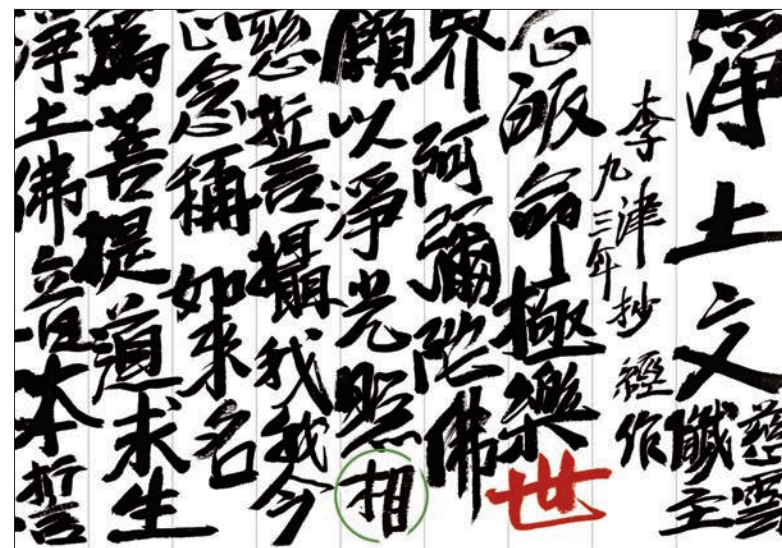 淨土文
慈雲
懺主
李津抄經作
九三年
一心皈命極樂世
界阿彌陀佛
願以淨光照相
慈誓攝我我今
正念稱如來名
爲菩提道求生
淨土佛昔本誓